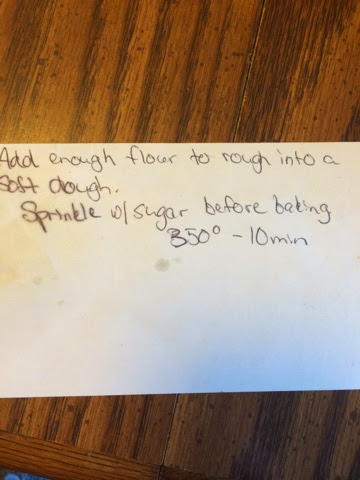 Add enough flour to rough into a
soft dough.
Sprinkle w/ sugar before baking
350° - 10 min